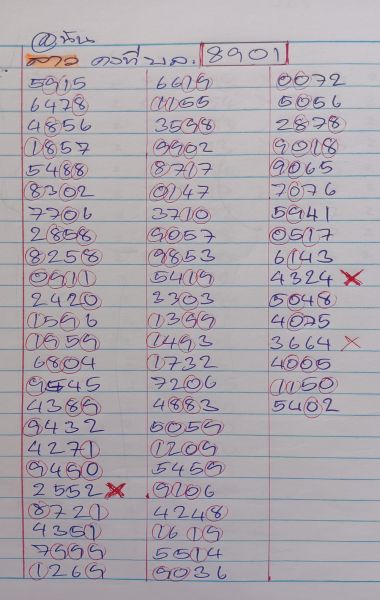 @นัน
ลาว คงที่ บ.ล: 8901
5915
6478
4856
1857
5488
8302
7706
2858
8258
0911
2420
1596
1959
6804
9545
4389
9432
4271
9490
2552 X
8721
4351
7999
1269
6619
1155
3598
9902
8717
0147
3710
9057
9853
5419
3303
1399
1493
1732
7206
4883
5059
1209
5459
9206
4248
1619
5514
9036
0072
5056
2878
9018
9065
7076
5941
0517
6143
4324 X
5048
4075
3664 X
4005
1150
5402